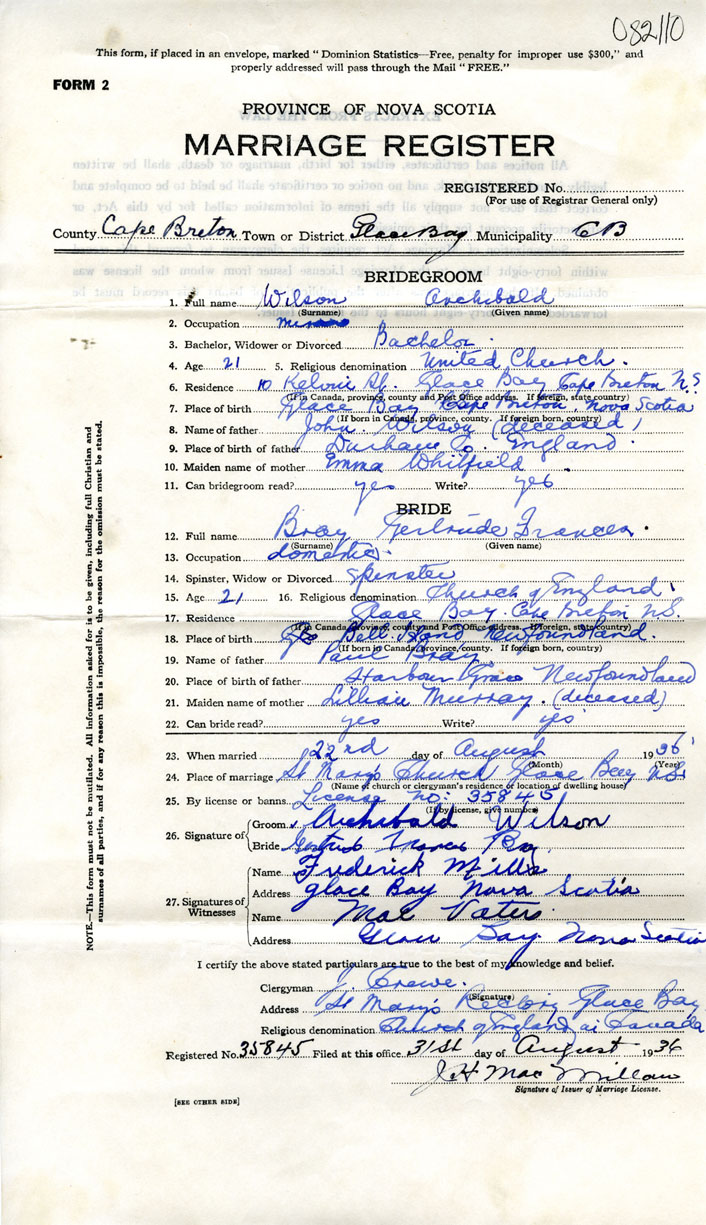 082110
This form, if placed in an envelope, marked "Dominion Statistics—Free, penalty for improper use $300," and
properly addressed will pass through the Mail "FREE."
FORM 2
PROVINCE OF NOVA SCOTIA
MARRIAGE REGISTER
REGISTERED No.
(For use of Registrar General only)
County Cape Breton Town or District Glace Bay Municipality CB
BRIDEGROOM
1. Full name Wilson Archibald
(Surname) (Given name)
2. Occupation
3. Bachelor, Widower or Divorced Bachelor
4. Age 21 5. Religious denomination United Church.
6. Residence 10 Kelvin St. Glace Bay Cape Breton N.S.
(If in Canada, province, county and Post Office address. If foreign, state country)
7. Place of birth Glace Bay Cape Breton, Nova Scotia
(If born in Canada, province, county. If foreign born, country)
8. Name of father John Wilson (deceased)
9. Place of birth of father Durham Co. England.
10. Maiden name of mother Emma Whitfield.
11. Can bridegroom read? yes Write? yes
BRIDE
12. Full name Bray Gertrude Frances.
(Surname) (Given name)
13. Occupation domestic.
14. Spinster, Widow or Divorced Spinster
15. Age 21 16. Religious denomination Church of England.
17. Residence Glace Bay. Cape Breton N.S.
(If in Canada, province, county and Post Office address. If foreign, state country)
18. Place of birth Bell Island Newfoundland.
(If born in Canada, province, county. If foreign born, country)
19. Name of father Paul Bray.
20. Place of birth of father Harbour Grace Newfoundland
21. Maiden name of mother Lillian Murray. (deceased)
22. Can bride read? yes Write? yes
23. When married 22nd day of August 1936
(Month) (Year)
24. Place of marriage St Mary's Church Glace Bay N.S.
(Name of church or clergyman's residence or location of dwelling house)
25. By license or banns License no. 35845
(If by license, give number)
26. Signature of
Groom Archibald Wilson
Bride Gertrude Frances Bray
27. Signatures of Witnesses
Name Frederick Mills
Address Glace Bay Nova Scotia
Name Mae Vaters
Address Glace Bay Nova Scotia
I certify the above stated particulars are true to the best of my knowledge and belief.
Clergyman J. Crewe.
(Signature)
Address St Mary's Rectory Glace Bay
Religious denomination Church of England in Canada
Registered No. 35845 Filed at this office 31st day of August 1936
J H MacMillan
Signature of Issuer of Marriage License.
[SEE OTHER SIDE]
NOTE.—This form must not be mutilated. All information asked for is to be given, including full Christian and
surnames of all parties, and if for any reason this is impossible, the reason for the omission must be stated.